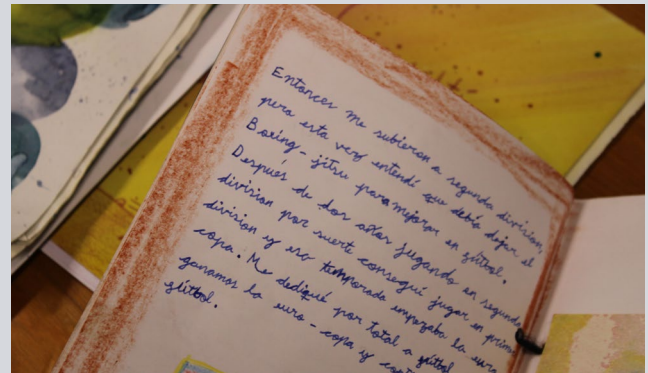 Entonces me subieron a segunda division,
pero esta vez entendí que debía dejar el
Boxing-jitsu para mejorar en fútbol.
Después de dos años jugando en segunda
division por suerte conseguí jugar en prim
division y esa temporada empezaba la euro
copa. Me dediqué por total a fútbol
ganamos la euro-copa y
fútbol.